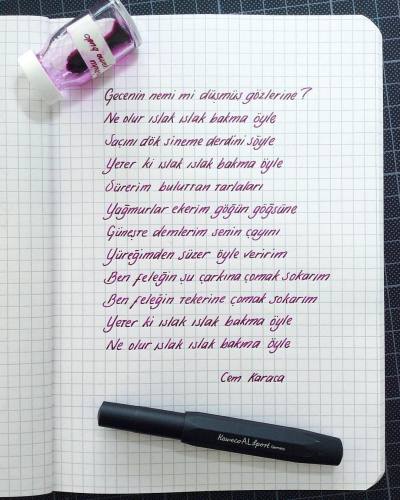 Gecenin nemi mi düşmüş gözlerine?
Ne olur ıslak ıslak bakma öyle
Saçını dök sineme derdini söyle
Yeter ki ıslak ıslak bakma öyle
Sürerim buluttan tarlaları
Yağmurlar ekerim göğün göğsüne
Güneşte demlerim senin çayını
Yüreğimden süzer öyle veririm
Ben feleğin şu çarkına çomak sokarım
Ben feleğin tekerine çomak sokarım
Yeter ki ıslak ıslak bakma öyle
Ne olur ıslak ıslak bakma öyle
Cem Karaca
Kaweco AL Sport Germany